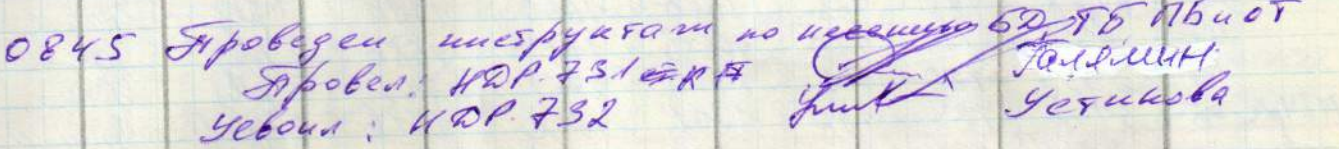 0845 Проведен инструктаж по несению БД, ТБ ПБ и ОТ
Провел: НДР. 731 Галямин
Усвоил: НДР. 732 Устинова